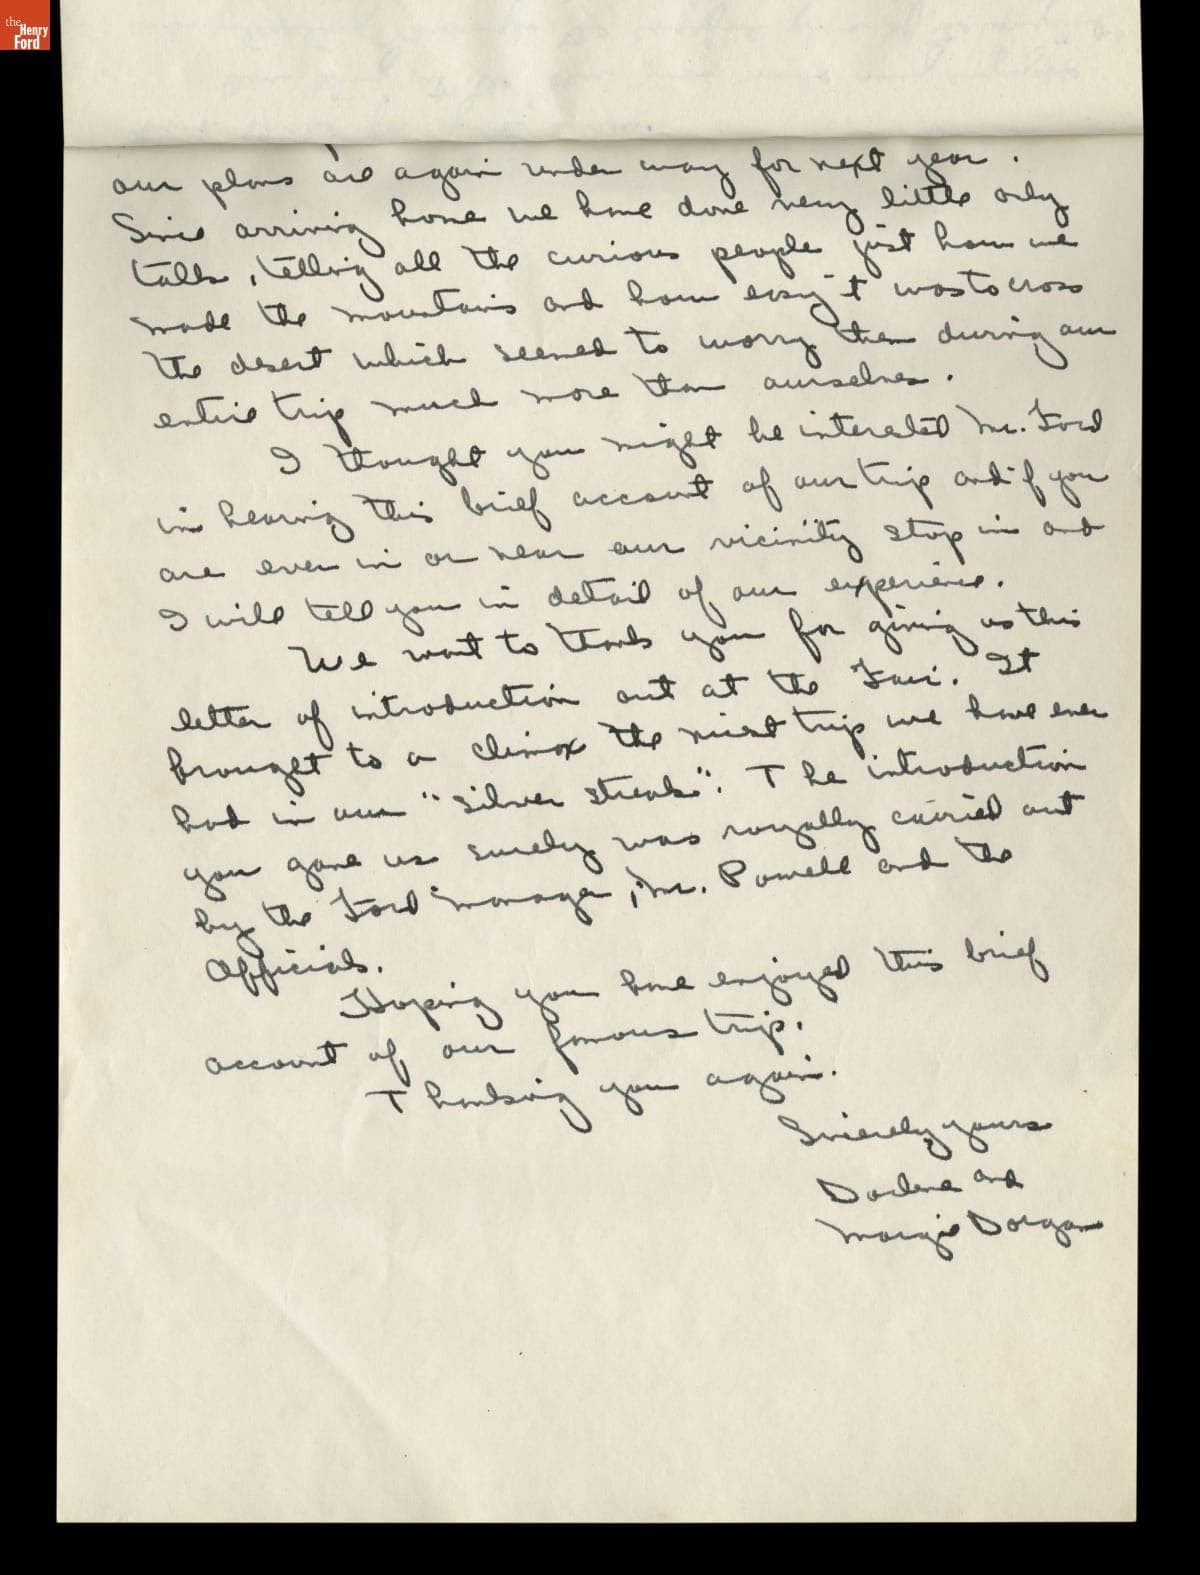 the
Henry
Ford
our plans are again under way for next year.
Since arriving home we have done very little only
talk, telling all the curious people just how we
made the mountains and how easy it was to cross
the desert which seemed to worry them during our
entire trip much more than ourselves.
I thought you might be interested Mr. Ford
in hearing this brief account of our trip and if you
are ever in or near our vicinity stop in and
I will tell you in detail of our experience.
We want to thank you for giving us this
letter of introduction out at the Fair. It
brought to a climax the nicest trip we have ever
had in our "Silver Streak". The introduction
you gave us surely was royally carried out
by the Ford Manager, Mr. Powell and the
Officials.
Hoping you have enjoyed this brief
account of our famous trip.
Thanking you again.
Sincerely yours
Darlene and
Margie Dorgan